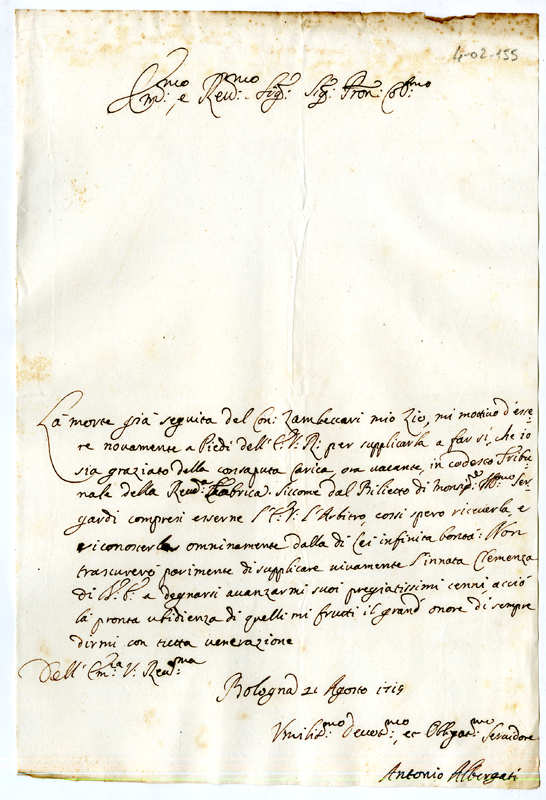 4-02-155
Em:mo, e Reud:mo Sig:r Sig:r Pron: Col:mo
La morte già seguita del Con: Zambeccari mio Zio, mi mottiuo d'esse=
re nouamente a Piedi dell'E: V: R: per supplicarla a far sì, che io
sia graziato della consaputa Carica, ora uacante, in codesto Tribu=
nale della Reud:a Fabrica. Siccome dal Biliecto di Monsig:re Ser=
gardi compresi esserne l'E: V: l'Arbitro, cossì spero riceuerla, e
riconoscerla omninamente dalla di Lei infinita bontà: Non
trascurerò parimente di supplicare uiuamente l'innata Clemenza
di V: E: a degnarsi auanzarmi suoi pregiatissimi cenni, acciò
la pronta ubidienza di quelli mi frutti il grand'onore di sempre
dirmi con tutta uenerazione
Dell'Em:za V: Reud:ma
Bologna 21 Agosto 1715
Vmilis:mo Deuot:mo, et Obligat:mo Seruidore
Antonio Albergati